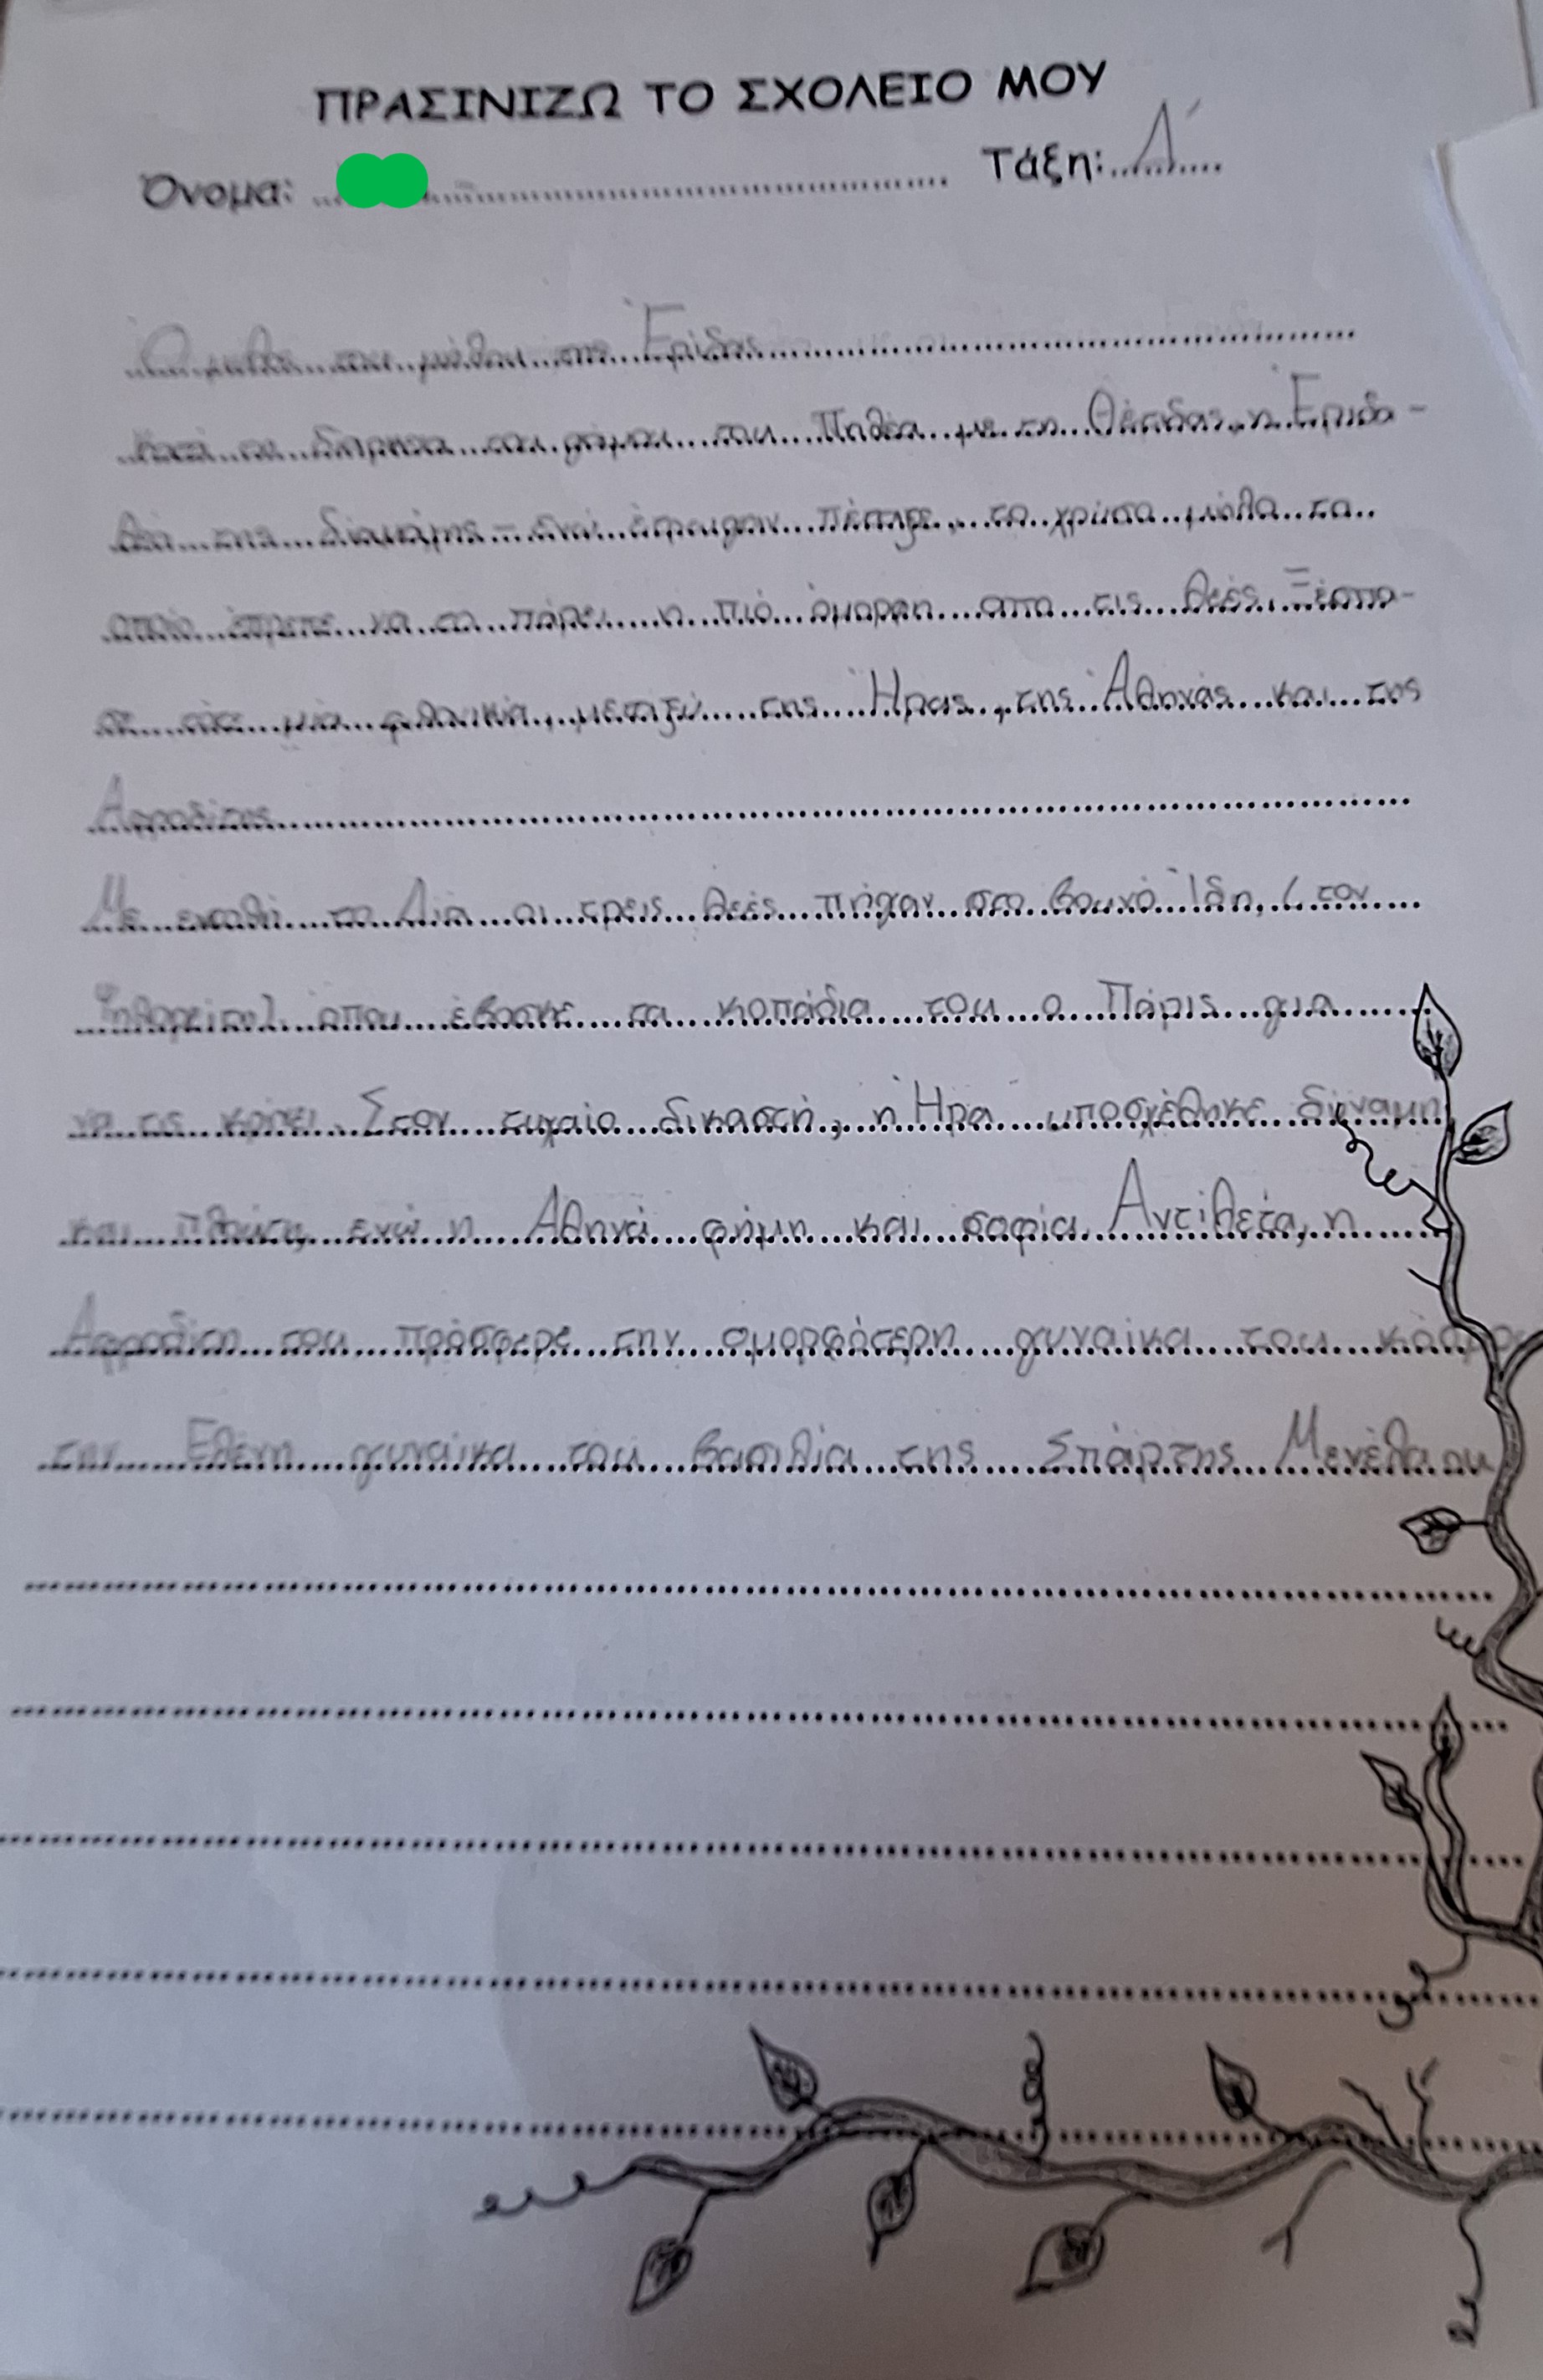 ΠΡΑΣΙΝΙΖΩ ΤΟ ΣΧΟΛΕΙΟ ΜΟΥ
Όνομα: Τάξη: Δ΄
Ο μύθος του μήλου της Έριδας
Κατά τη διάρκεια του γάμου του Πηλέα με τη Θέτιδας, η Έριδα-
θεά της διαμάχης - ενώ έτρωγαν πέταξε, το χρύσο μήλο το
οποίο έπρεπε να το πάρει η πιό όμορφη απο τις θεές. Ξέσπα-
σε τότε μία φιλονικία, μεταξύ της Ήρας, της Αθηνάς και της
Αφροδίτης
Με εντολή το Δία οι τρεις θεές πήγαν στο βουνό Ίδη, (τον
Ψηλορείτη) όπου έβοσκε τα κοπάδια του ο Πάρις για
να τις κρίνει. Στον τυχαίο δικαστή, η Ήρα υποσχέθηκε δύναμη
και πλούτη, ενώ η Αθηνά φήμη και σοφία. Αντίθετα, η
Αφροδίτη του πρόσφερε την ομορφότερη γυναίκα του κόσμου
την Ελένη γυναίκα του βασιλία της Σπάρτης Μενέλαου